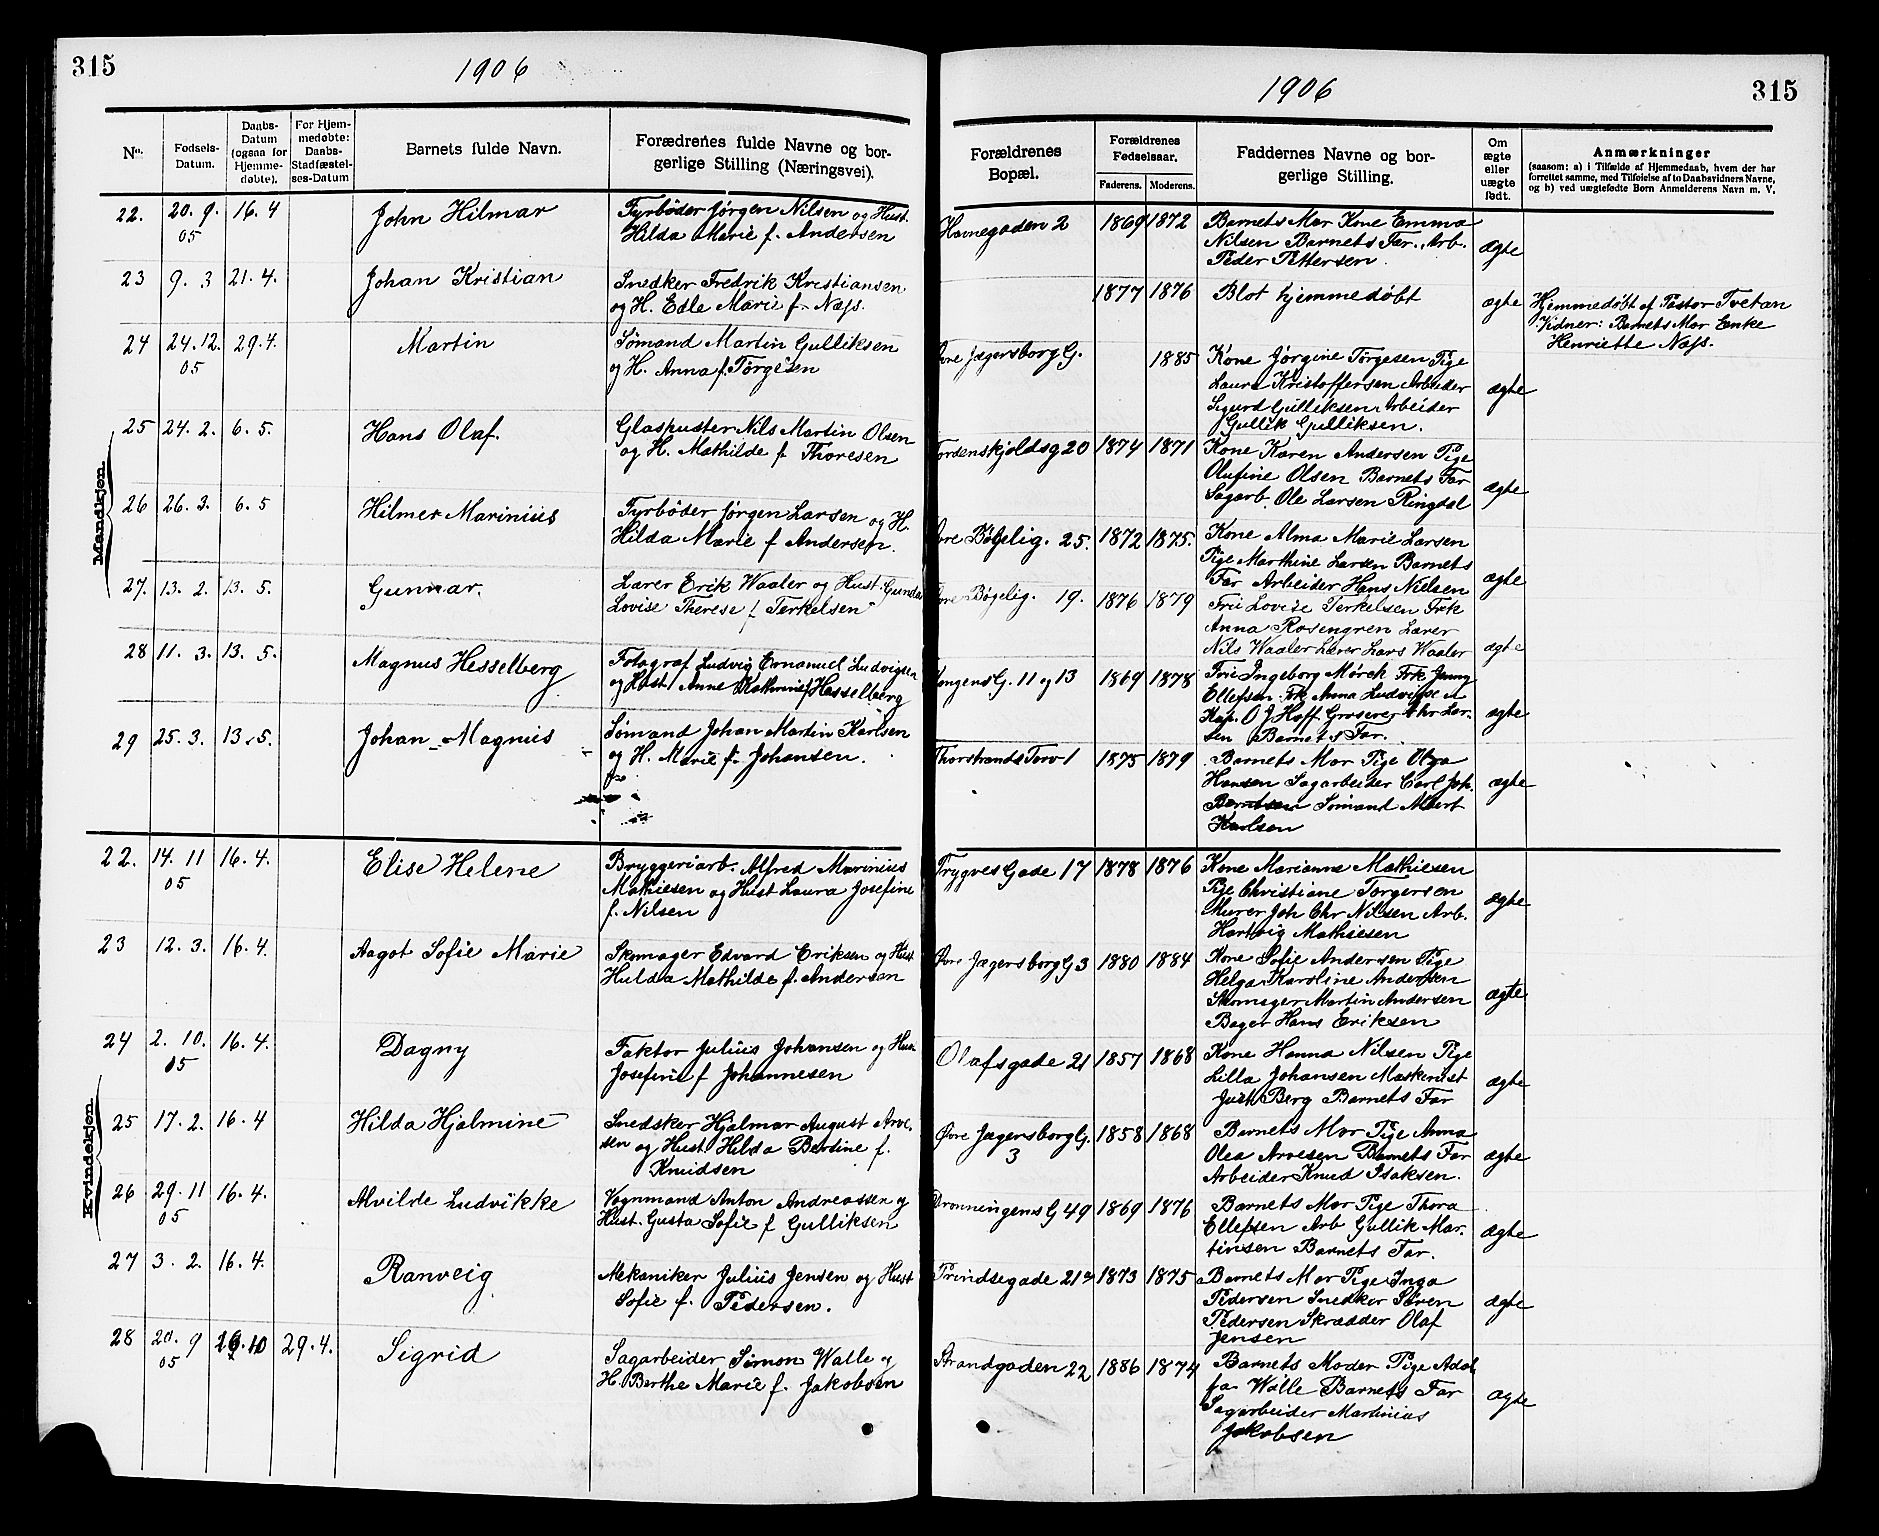 315
1906
1906
315
No.
Fødsels-
Datum.
Daabs-
Datum
(ogsaa for
Hjemme-
døbte).
For Hjem-
medøbte:
Daabs-
Stadfæstel-
ses-Datum
Barnets fulde Navn.
Forældrenes fulde Navne og bor-
gerlige Stilling (Næringsvei).
Forældrenes
Bopæl.
Forældrenes
Fødselsaar.
Faderens. Moderens.
Faddernes Navne og bor-
gerlige Stilling.
Om
ægte
eller
uægte
født.
Anmærkninger
(saasom: a) i Tilfælde af Hjemmedaab, hvem der har
forrettet samme, med Tilføielse af to Daabsvidners Navne,
og b) ved uægtefødte Børn Anmelderens Navn m. V.
Mandkjøn.
22. 20. 9. 05 16. 4 John Hilmar
Fyrbøder Jørgen Nilsen og Hust.
Hilda Marie f. Andersen
Havnegaden 2 1869 1872
Barnets Mor Kone Emma
Nilsen Barnets Far. Arb.
Peder Pettersen.
ægte
23 9. 3 21. 4. Johan Kristian
Snedker Fredrik Kristiansen
og H. Edle Marie f. Næss.
1877 1876 Blot hjemmedøbt ægte
Hjemmedøbt af Pastor Tvetan
Vidner: Barnets Mor Enke
Henriette Næss.
24 24. 12. 05 29. 4. Martin
Sømand Martin Gulliksen
og H. Anna f. Torgesen
Øvre Jægersborg G. 1885
Kone Jørgine Torgesen Pige
Laura Kristoffersen Arbeider
Sigurd Gulliksen Arbeider
Gullik Gulliksen.
ægte
25 24. 2. 6. 5. Hans Olaf.
Glaspuster Nils Martin Olsen
og H. Mathilde f. Thoresen
Tordenskjoldsg 20 1874 1871
Kone Karen Andersen Pige
Olufine Olsen Barnets Far
Sagarb. Ole Larsen Ringdal
ægte
26 26. 3. 6. 5 Hilmer Marinius
Fyrbøder Jørgen Larsen og H.
Hilda Marie f Andersen.
Øvre Bøgelig. 25. 1872 1875.
Kone Alma Marie Larsen
Pige Marthine Larsen Barnets
Far Arbeider Hans Nielsen
ægte
27. 13. 2. 13. 5. Gunnar.
Lærer Erik Waaler og Hust. Gunda
Lovise Therese f Terkelsen
Øvre Bøgelig. 19. 1876 1879
Frü Lovise Terkelsen Frk
Anna Rosengren Lærer
Nils Waaler Lærer Lars Waaler
ægte
28 11. 3. 13. 5. Magnus Hesselberg
Fotograf Ludvig Emanuel Ludvigsen
og Hust Anne Kathrine f Hesselberg
Kongens G. 11 og 13 1869 1878
Frü Ingeborg Mørch Frk Jenny
Ellefsen. Frk Anna Ludvigsen
Kap. O J Hoff Groserer Chr Lar-
sen Barnets Far.
ægte
29 25. 3. 13. 5. Johan Magnus
Sømand Johan Martin Karlsen
og H. Marie f. Johansen.
Thorstrands Torv 1 1875 1879
Barnets Mor Pige Olga
Hansen Sagarbeider Carl Joh.
Berntsen Sømand Albert
Karlsen
ægte
Kvindekjøn.
22. 14. 11 05 16. 4. Elise Helene
Bryggeriarb. Alfred Marinius
Mathiesen og Hust Laura Josefine
f. Nilsen
Trygves Gade 17 1878 1876
Kone Marianne Mathiesen
Pige Christiane Torgersen
Murer Joh Chr Nilsen Arb.
Hartvig Mathiesen
ægte
23 12. 3. 16. 4. Aagot Sofie Marie
Skomager Edvard Eriksen og Hust
Hulda Mathilde f. Andersen
Øvre Jægersborg G 3 1880 1884
Kone Sofie Andersen Pige
Helga Karoline Andersen
Skomager Martin Andersen
Bager Hans Eriksen
ægte
24 2. 10. 05 16. 4. Dagny
Faktor Julius Johansen og Hus.
Josefine f Johannesen
Olafsgade 21 1857 1868
Kone Hanna Nilsen Pige
Lilla Johansen Maskinist
Just Berg Barnets Far
ægte
25 17. 2. 16. 4 Hilda Hjalmine
Snedker Hjalmar August Arve-
sen og Hust Hilda Bertine f.
Knudsen
Øvre Jægersborg G. 3 1858 1868
Barnets Mor Pige Anna
Olea Arvesen Barnets Far
Arbeider Knud Isaksen.
ægte
26 29. 11 05 16. 4. Alvilde Ludvikke
Vognmand Anton Andreassen og
Hust. Gusta Sofie f Gulliksen
Dronningens G 49 1869 1876
Barnets Mor Pige Thora
Ellefsen Arb Gullik Mar-
tinsen Barnets Far.
ægte
27 3. 2. 16. 4. Ranveig
Mekaniker Julius Jensen og Hust
Sofie f. Pedersen.
Prindsegade 21 1873 1875
Barnets Mor Pige Inga
Pedersen Snedker Søren
Pedersen Skrædder Olaf
Jensen
ægte
28 20. 9 05 10 29. 4. Sigrid
Sagarbeider Simon Walle og
H. Berthe Marie f. Jakobsen
Strandgaden 22 1886 1874
Barnets Moder Pige Adol
fa Wälle Barnets Far
Sagarbeider Martinius
Jakobsen
ægte